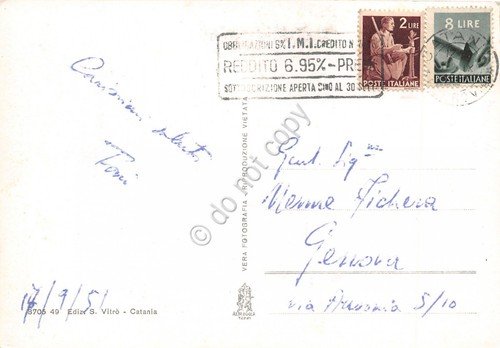 OBBLIGAZIONI 5% I.M.I. CREDITO N
REDDITO 6.95% - PRE
SOTTOSCRIZIONE APERTA SINO AL 30 SETT
2 LIRE
POSTE ITALIANE
8 LIRE
POSTE ITALIANE
CATANIA
Carissimi saluti,
Toni
17/9/51
3705 49 Ediz. S. Vitrò - Catania
VERA FOTOGRAFIA - RIPRODUZIONE VIETATA
do not copy
Gent. Sig.na
Genova
via 5/10